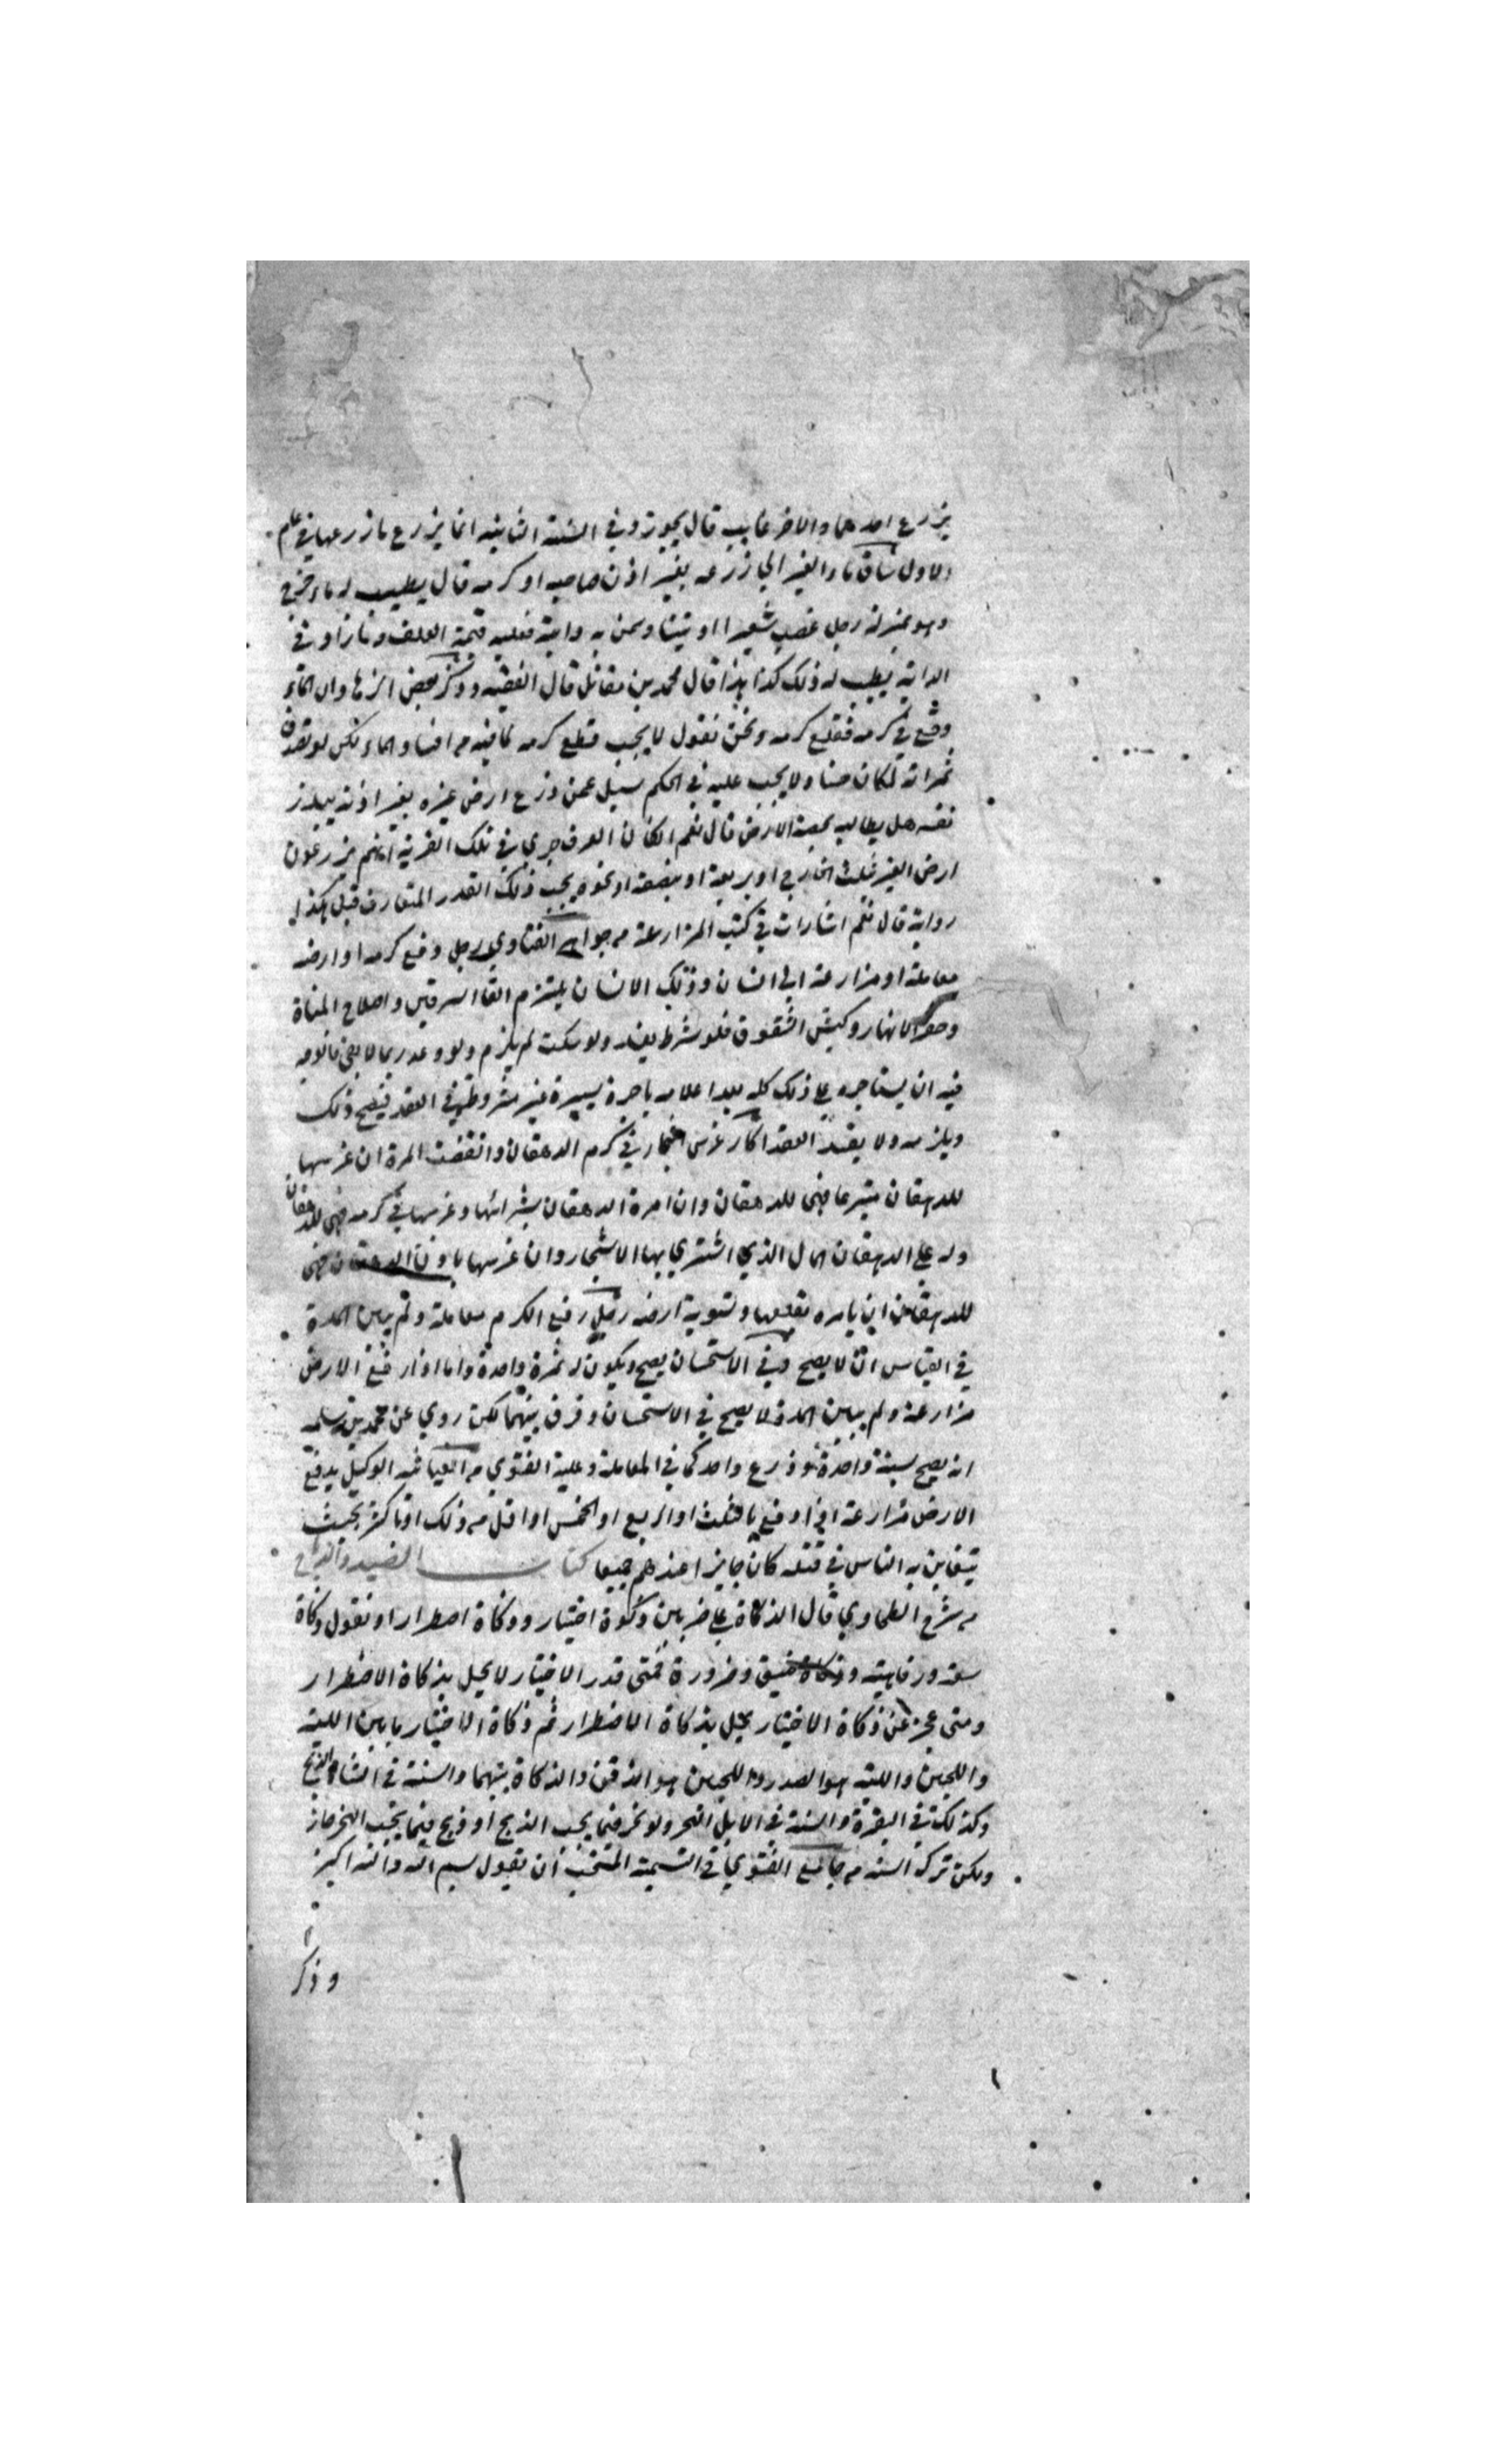 يزرع احدهما والاخر غايب قال يجوز وفي السنة الثانية انما يزرع ما زرعها في عام
الاول ساق ماء الغير الي زرعه بغير اذن صاحبه او كرمه قال يطيب له ما خرج
وهو بمنزلة رجل غصب شعيرا او تبنا وسمن به دابته فعليه قيمة العلف وما زاد في
الدابة يطيب له ذلك كذا هذا قال محمد بن مقاتل قال الفقيه وذكر بعض الزهاد ان الماء
وقع في كرمه فقلع كرمه ونحن نقول لا يجب قطع كرمه لما فيه من افساد المال ولكن لو تصدق
ثمراته لكان حسنا ولا يجب عليه في الحكم سيل عمن زرع ارض غيره بغير اذنه ببذر
نفسه هل يطالبه بحصة الارض قال نعم ان كان العرف جري في تلك القرية انهم يزرعون
ارض الغير بثلث الخارج او بربعه او بنصفه او نحوه يجب ذلك القدر المتعارف قيل هكذا
رواية قال نعم اشارات في كتب المزارعة من جواهر الفتاوي رجل دفع كرمه او ارضه
معاملة او مزارعة الي انسان وذلك الانسان يلتزم القا السرقين واصلاح المسناة
وحفر الانهار وكبس الشقوق فلو شرط يفسد ولو سكت لم يلزم ولو وعد ربما لا يفي فالوجه
فيه ان يستاجره علي ذلك كله بعد اعلامه باجرة يسيرة غير مشروطة في العقد فيصح ذلك
ويلزمه ولا يفسد العقد اكار غرس اشجار في كرم الدهقان وانقضت المدة ان غرسها
للدهقان متبرعا فهي للدهقان وان امره الدهقان بشرائها وغرسها في كرمه فهي للدهقان
وله علي الدهقان المال الذي اشتري بها الاشجار وان غرسها باذن الدهقان فهي
للدهقان ان يامره بقلعها وتسوية ارضه رجل دفع الكرم معاملة ولم يبين المدة
في القياس ان لا يصح وفي الاستحسان يصح ويكون له ثمرة واحدة واما اذا دفع الارض
مزارعة ولم يبين المدة لا يصح في الاستحسان وفرق بينهما لكن روي عن محمد بن سلمه
انه يصح سنة واحدة وزرع واحد كما في المعاملة وعليه الفتوي من الغياثيه الوكيل بدفع
الارض مزارعة اذا دفع بالثلث او الربع او الخمس او اقل من ذلك او اكثر بحيث
يتغابن به الناس في مثله كان جايزا عندهم جميعا كتاب الصيد والذبائح
من شرح الطحاوي قال الذكاة علي ضربين ذكوة اختيار وذكاة اضطرار او نقول ذكاة
سعة ورفاهية وذكاة ضيق وضرورة فمتي قدر الاختيار لا يحل بذكاة الاضطرار
ومتي عجز عن ذكاة الاختيار يحل بذكاة الاضطرار ثم ذكاة الاختيار ما بين اللبة
واللحيين واللبة هو الصدر واللحيين هو الذقن والذكاة بينهما والسنة في الشاة الذبح
وكذلك في البقرة والسنة في الابل النحر ولو نحر فيما يجب الذبح او ذبح فيما يجب النحر جاز
ولكن ترك السنه من جامع الفتوي في التسمية المستحب ان يقول بسم الله والله اكبر
وذكر